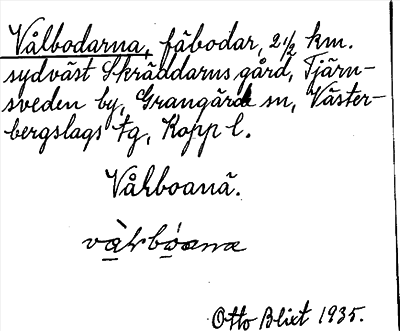 Vålbodarna, fäbodar, 2 1/2 km.
sydväst Skräddarns gård, Tjärn-
sveden by, Grangärde sn, Väster-
bergslags tg, Kopp l.
Vårboanä.
vàrbóanæ
Otto Blixt 1935.